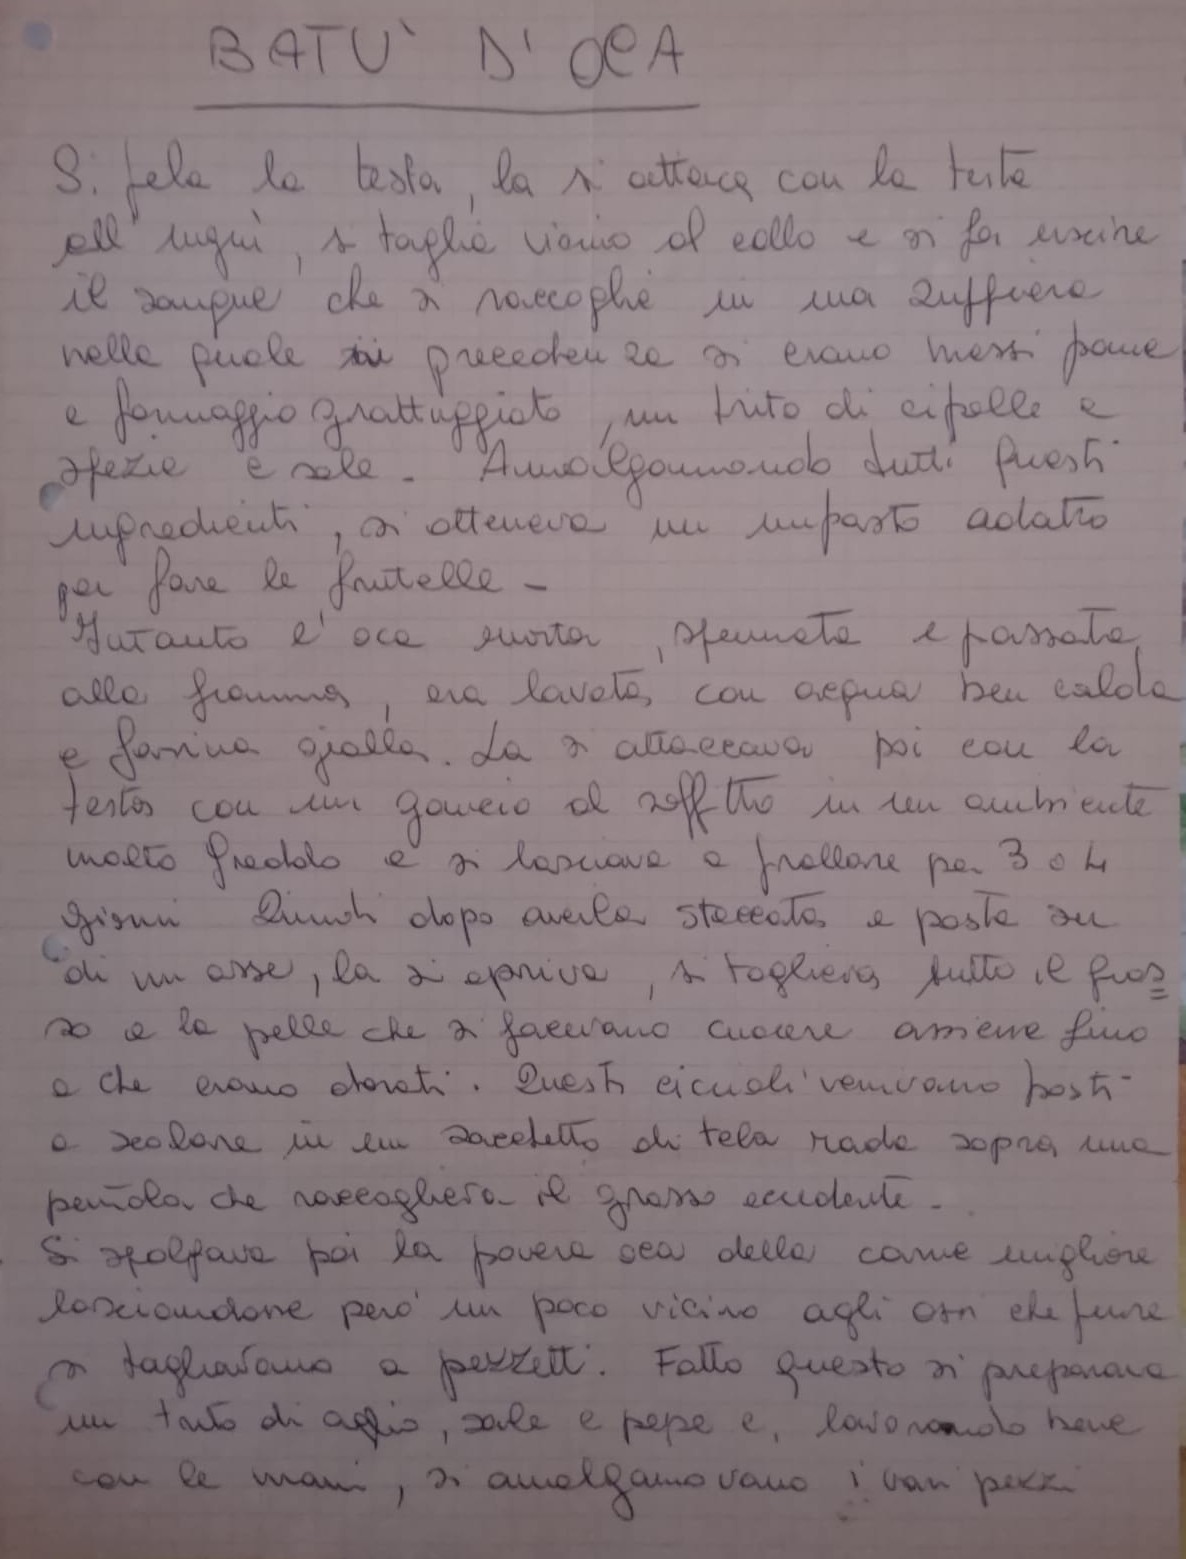 BATU' D'OCA
Si pela la testa, la si attacca con la testa
all'ingiù, si taglia vicino al collo e si fa uscire
il sangue che si raccoglie in una zuppiera
nella quale in precedenza si erano messi pane
e formaggio grattuggiato, un trito di cipolle e
spezie e sale. Amalgamando tutti questi
ingredienti, si otteneva un impasto adatto
per fare le frittelle -
Intanto l'oca morta, spennata e passata
alla fiamma, era lavata con acqua ben calda
e farina gialla. La si attaccava poi con la
testa con un gancio al soffitto in un ambiente
molto freddo e si lasciava a frollare per 3 o 4
giorni Quindi dopo averla staccata e posta su
di un asse, la si apriva, si toglieva tutto il gras=
so e la pelle che si facevano cuocere assieme fino
a che erano dorati. Questi cicioli venivano posti
a scolare in un sacchetto di tela rada sopra una
pentola che raccoglieva il grasso eccedente -
Si spolpava poi la povera oca della carne migliore
lasciandone però un poco vicino agli ossi che pure
si tagliavano a pezzetti. Fatto questo si preparava
un trito di aglio, sale e pepe e, lavorando bene
con le mani, si amalgamavano i vari pezzi